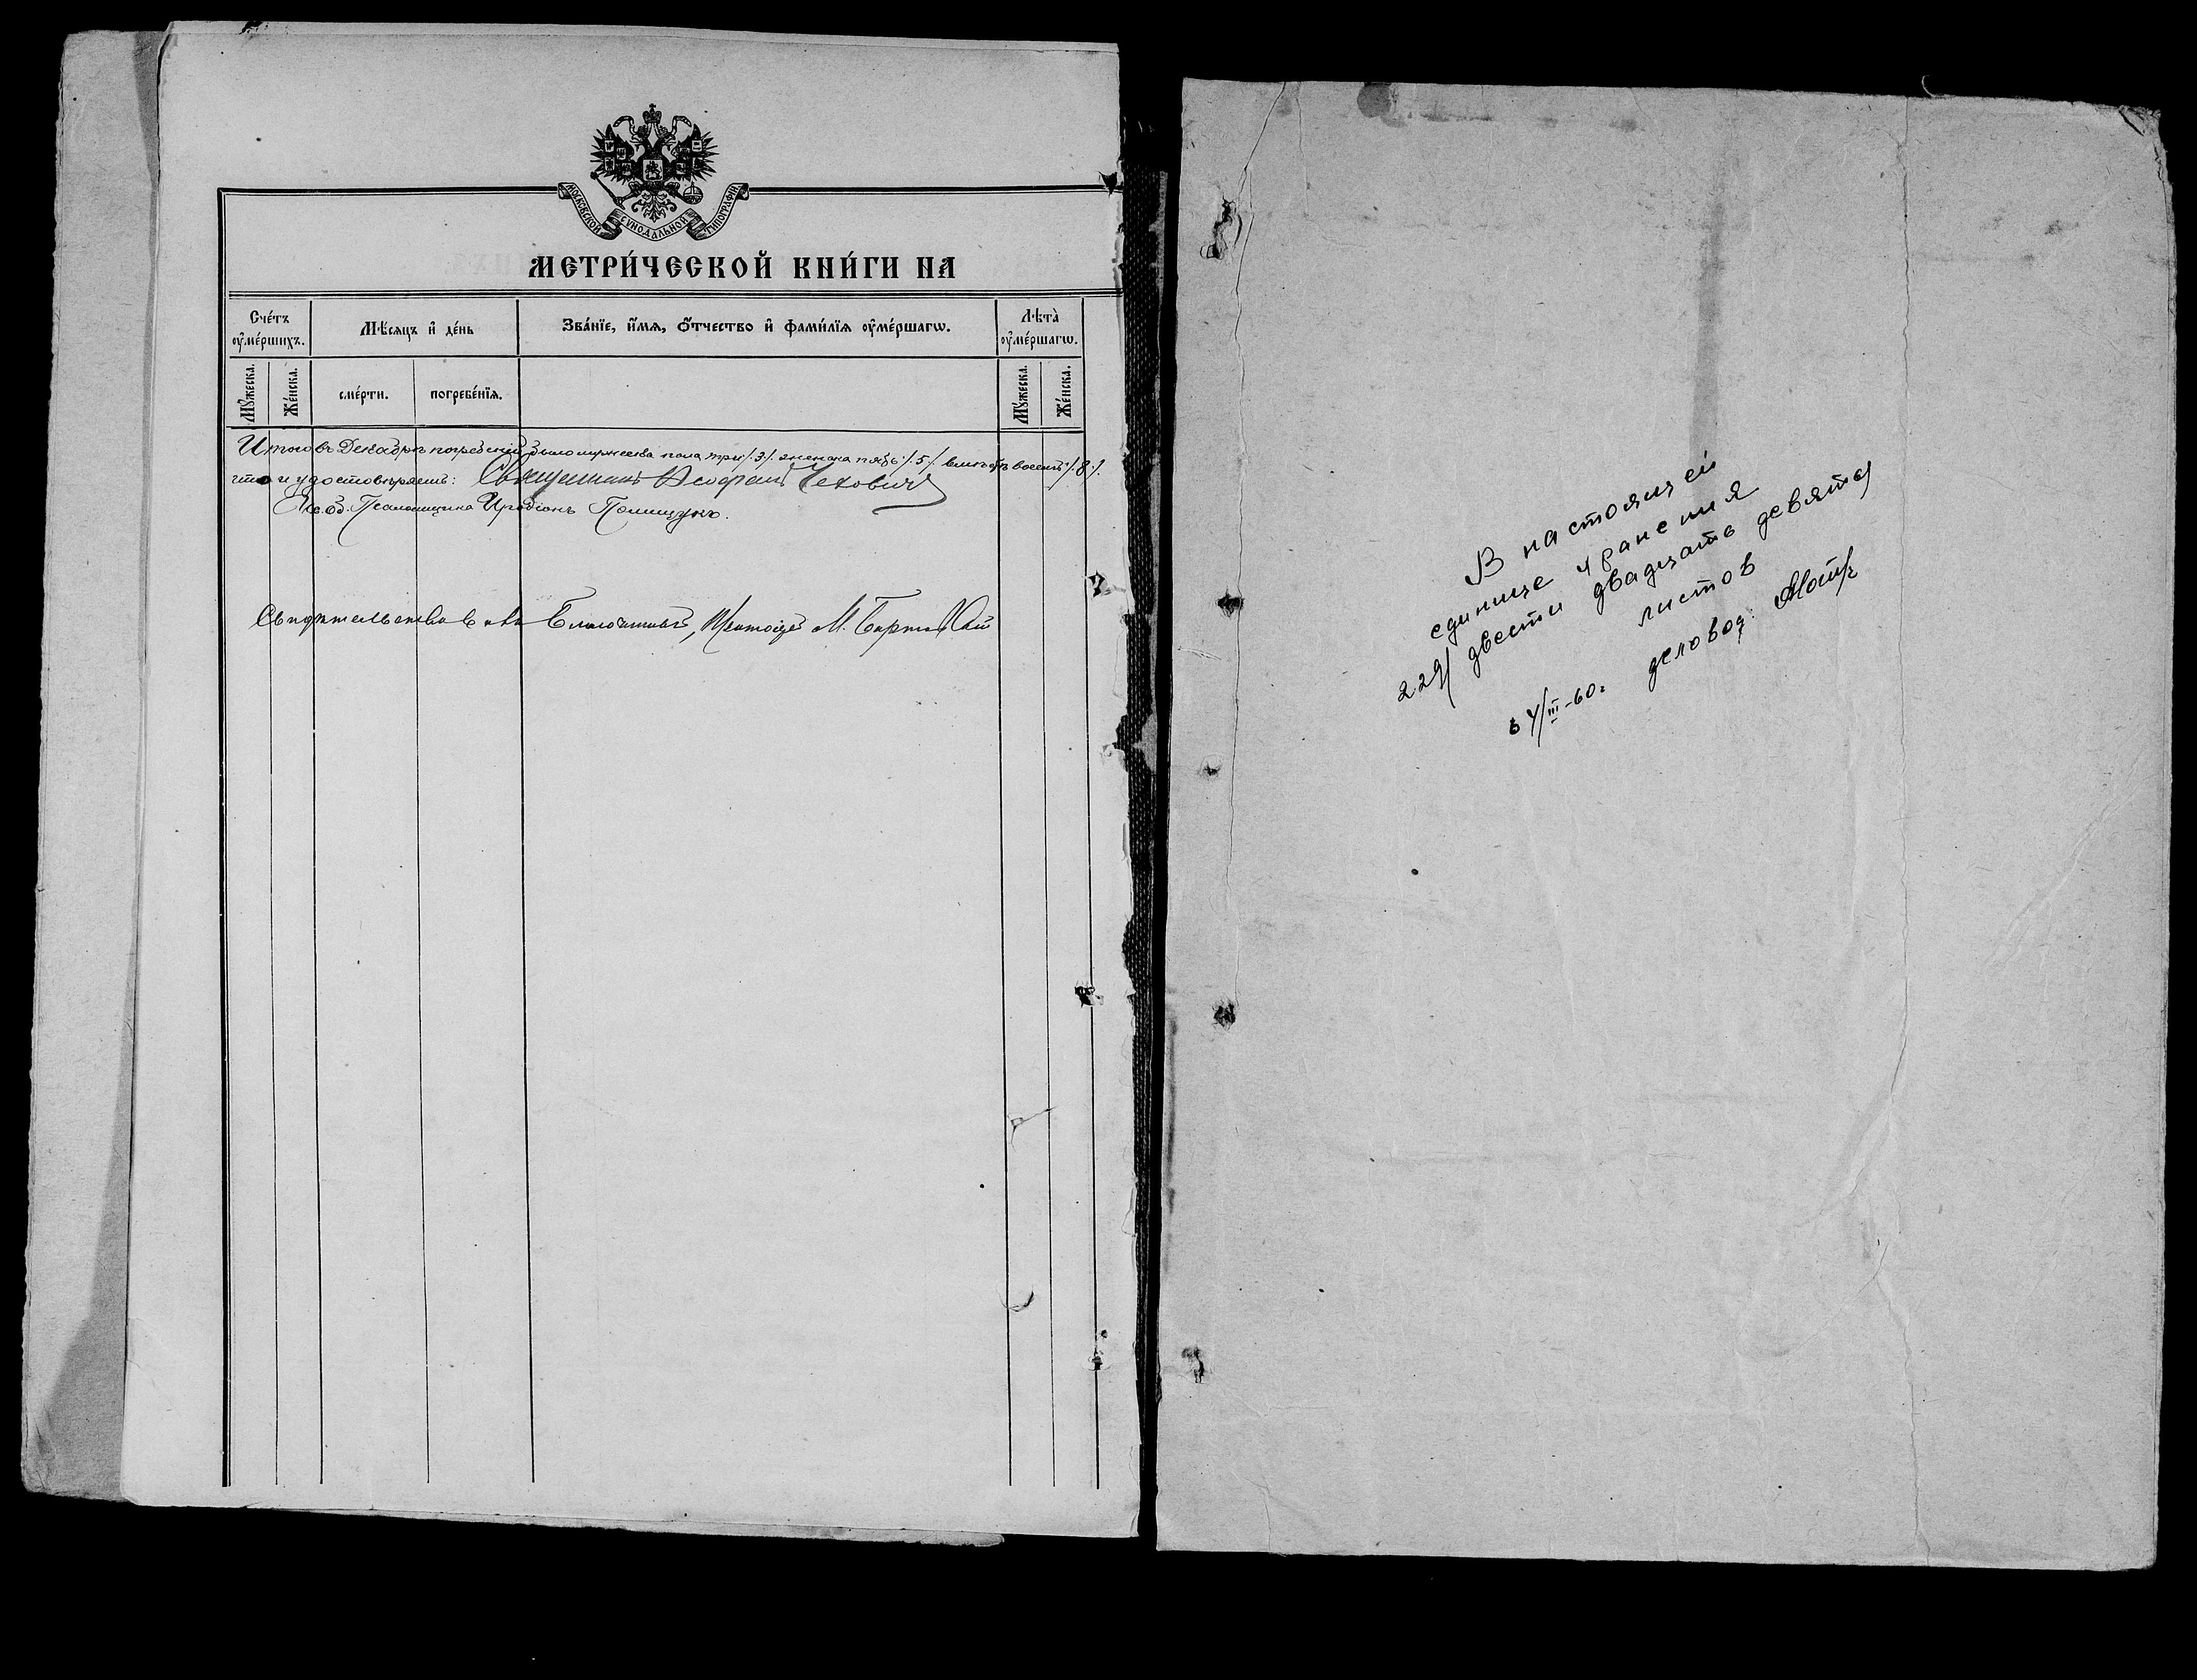 МОСКОВСКОЙ СѴНОДАЛЬНОЙ ТИПОГРАФІИ
МЕТРИ́ЧЕСКОЙ КНИ́ГИ НА
Сче́тъ ᲂу҆ме́ршихъ.
Мѣ́сяцъ и҆ де́нь
Зва́нїе, и҆́мѧ, ѻ҆́тчество и҆ фами́лїѧ ᲂу҆ме́ршагѡ.
Лѣта̀ ᲂу҆ме́ршагѡ.
Мꙋ́жеска.
Же́нска.
сме́рти.
погребе́нїѧ.
Мꙋ́жеска.
Же́нска.
Итого въ Декабрѣ погребеній было мужеска пола три /:3:/ женска пять /:5:/ вмѣстѣ восемь /:8:/.
что и удостовѣряетъ: Священникъ Ѳеофанъ Чехович
Ис. об. Псаломщика Иродіонъ Полищукъ.
Свидѣтельствовалъ Благочинный, Протоіерей М.
В настоящей
единице хранения
229/ двести двадцать девять/
листов
6 4/III-60г деловод.